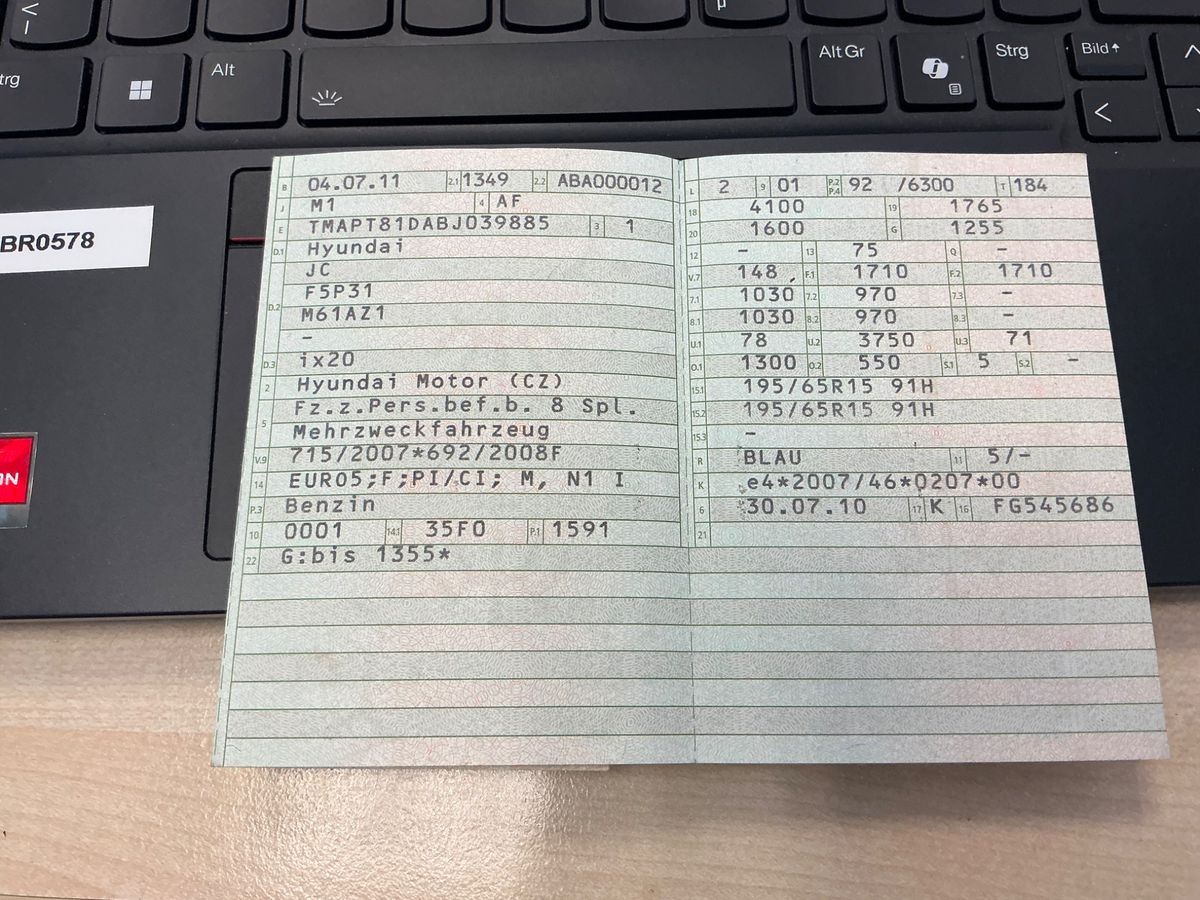 <
|
µ
trg
Alt
Alt Gr
Strg
Bild
<
BR0578
ON
B 04.07.11 2.1 1349 2.2 ABA000012
J M1 4 AF
E TMAPT81DABJ039885 3 1
D.1 Hyundai
D.2 JC
F5P31
M61AZ1
–
D.3 ix20
2 Hyundai Motor (CZ)
5 Fz.z.Pers.bef.b. 8 Spl.
Mehrzweckfahrzeug
V.9 715/2007*692/2008F
14 EURO5;F;PI/CI; M, N1 I
P.3 Benzin
10 0001 14.1 35F0 P.1 1591
22 G:bis 1355*
L 2 9 01 P.2 P.4 92 /6300 T 184
18 4100 19 1765
20 1600 G 1255
12 – 13 75 Q –
V.7 148, F.1 1710 F.2 1710
7.1 1030 7.2 970 7.3 –
8.1 1030 8.2 970 8.3 –
U.1 78 U.2 3750 U.3 71
O.1 1300 O.2 550 S.1 5 S.2 –
15.1 195/65R15 91H
15.2 195/65R15 91H
15.3 –
R BLAU 11 5/-
K e4*2007/46*0207*00
6 30.07.10 17 K 16 FG545686
21